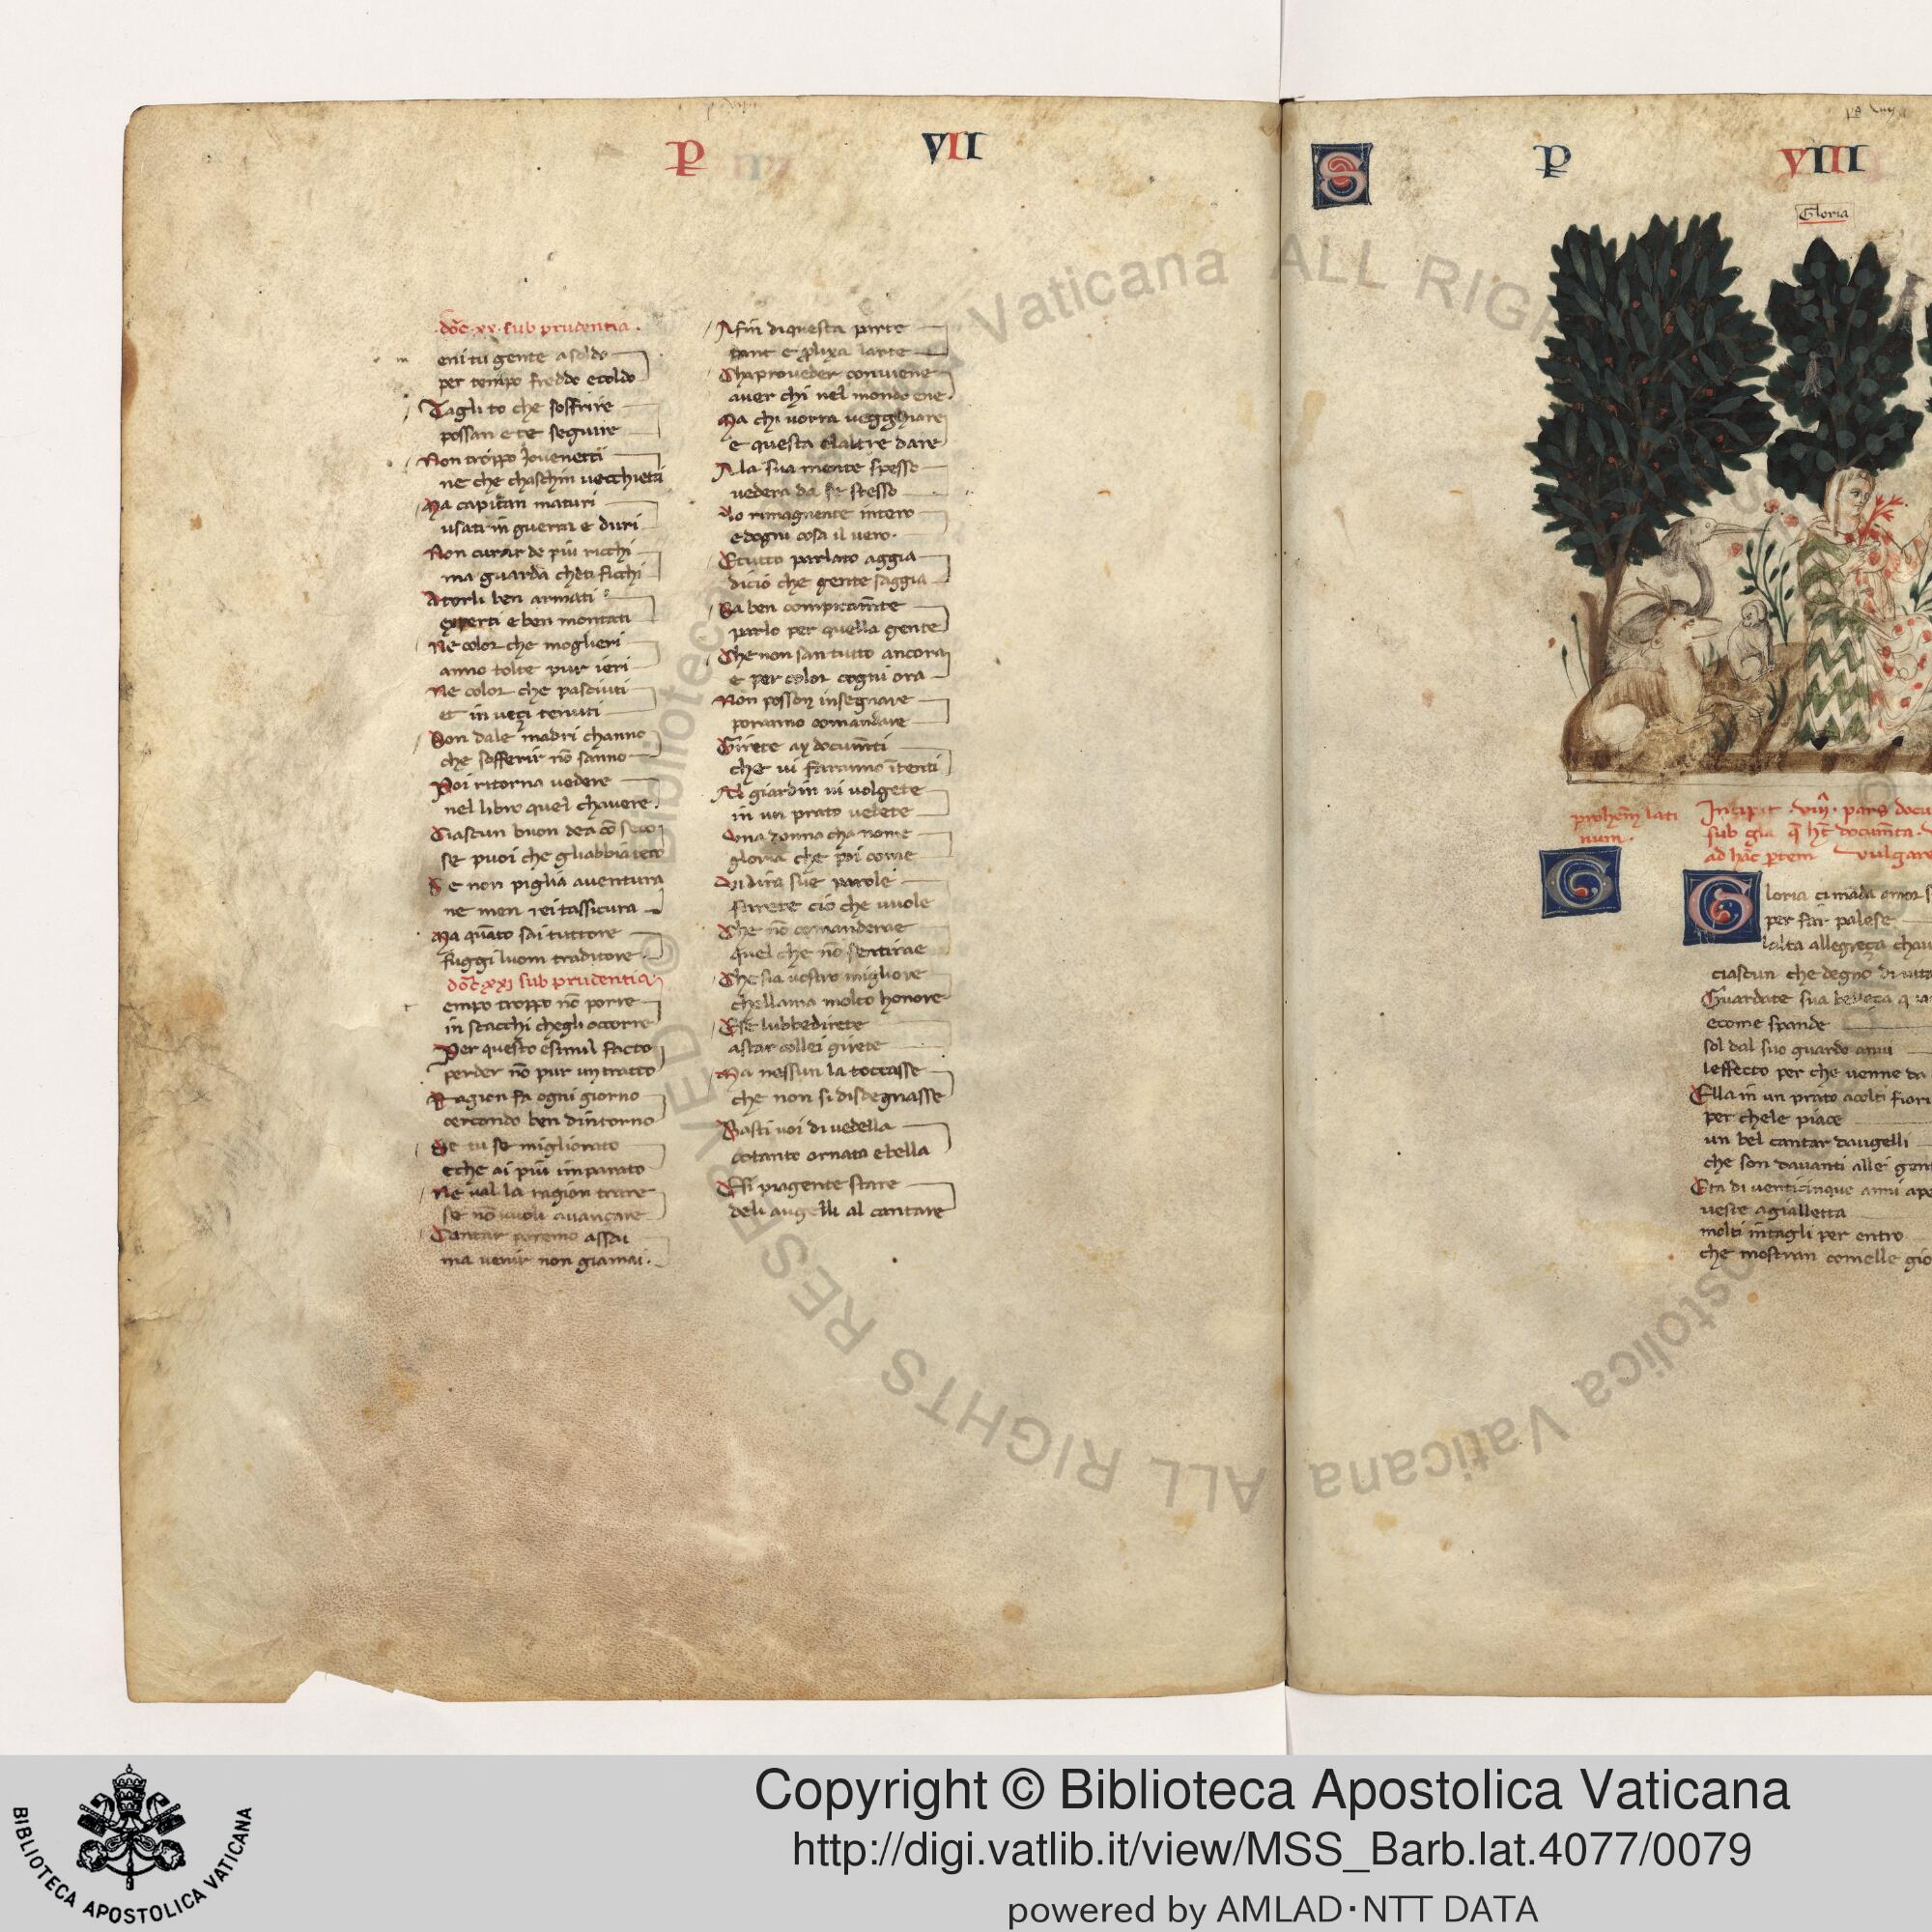 P VII
doc. xx. sub prudentia.
eni tu gente a soldo
per tempo freddo e coldo
Tagli to che soffrire
possan e te seguire
Non troppo Jovenetti
ne che chaschin vecchietti
Ma capitan maturi
usati in guerra e duri
Non curar de piu ricchi
ma guarda che ti ficchi
A torli ben armati
experti e ben montati
Ne color che moglieri
anno tolte pur ieri
Ne color che pasciuti
et in veçi tenuti
Son dale madri channo
che sofferir nō sanno
Poi ritorna vedere
nel libro quel chavere.
Ciascun buon dea cō seco
se puoi che gliabbia teco
Se non piglia aventura
ne men rei tassicura
Ma quāto sai tuttore
fuggi luom traditore.
doc xxi sub prudentia
empo troppo nō porre
in scacchi chegli occorre
Per questo e simil facto
perder nō pur un tracto
Ragion fa ogni giorno
cercando ben dintorno
Se tu se migliorato
e che ai piu imparato
Ne val la ragion trare
se nō vuoli avançare
Cantar poremo assai
ma venir non giamai.
A fin di questa parte
tant e plixa larte
Cha proveder conviene
aver chi nel mondo ene.
Ma chi vorra vegghiare
e questa elaltre dare
A la sua mente spesso
vedera da se stesso
Lo rimagnente intero
e dogni cosa il vero.
E tutto parlato aggia
dicio che gente saggia
Sa ben
parlo per quella gente
Che non san tutto ancora
e per color cogni ora
Non posson insegnare
poranno comandare
Girete ay documti
che vi faranno ītenti
Al giardin vi volgete
in un prato vedete
Una donna cha nome
gloria che poi come
Vi dira sue parole
farete cio che vuole
Che nō comanderae
quel che nō sentirae
Che sia vostro migliore
chellama molto honore
E se lubbedirete
a star collei girete
Ma nessun la toccasse
che non si disdegnasse
Basti voi di vedella
cotanto ornata e bella
E si pregente stare
deli augelli al cantare
S P VIII
Gloria
prohem lati
num.
Incipit .viii. pars docu
sub gla q ht documta.
ad hāc ptem vulgare
G
G loria ci mada amor s
per far palese
lalta allegreça chau
ciascun che degno di vita
Guardate sua belleça qua
e come spande
sol dal suo guardo amu
leffecto per che venne da
Ella in un prato acolti fiori
per chele piace
un bel cantar daugelli
che son davanti allei gent
Eta di venticinque anni ape
veste agialletta
molti intagli per entro
che mostran comelle gio
Copyright © Biblioteca Apostolica Vaticana
http://digi.vatlib.it/view/MSS_Barb.lat.4077/0079
powered by AMLAD·NTT DATA
BIBLIOTECA APOSTOLICA VATICANA